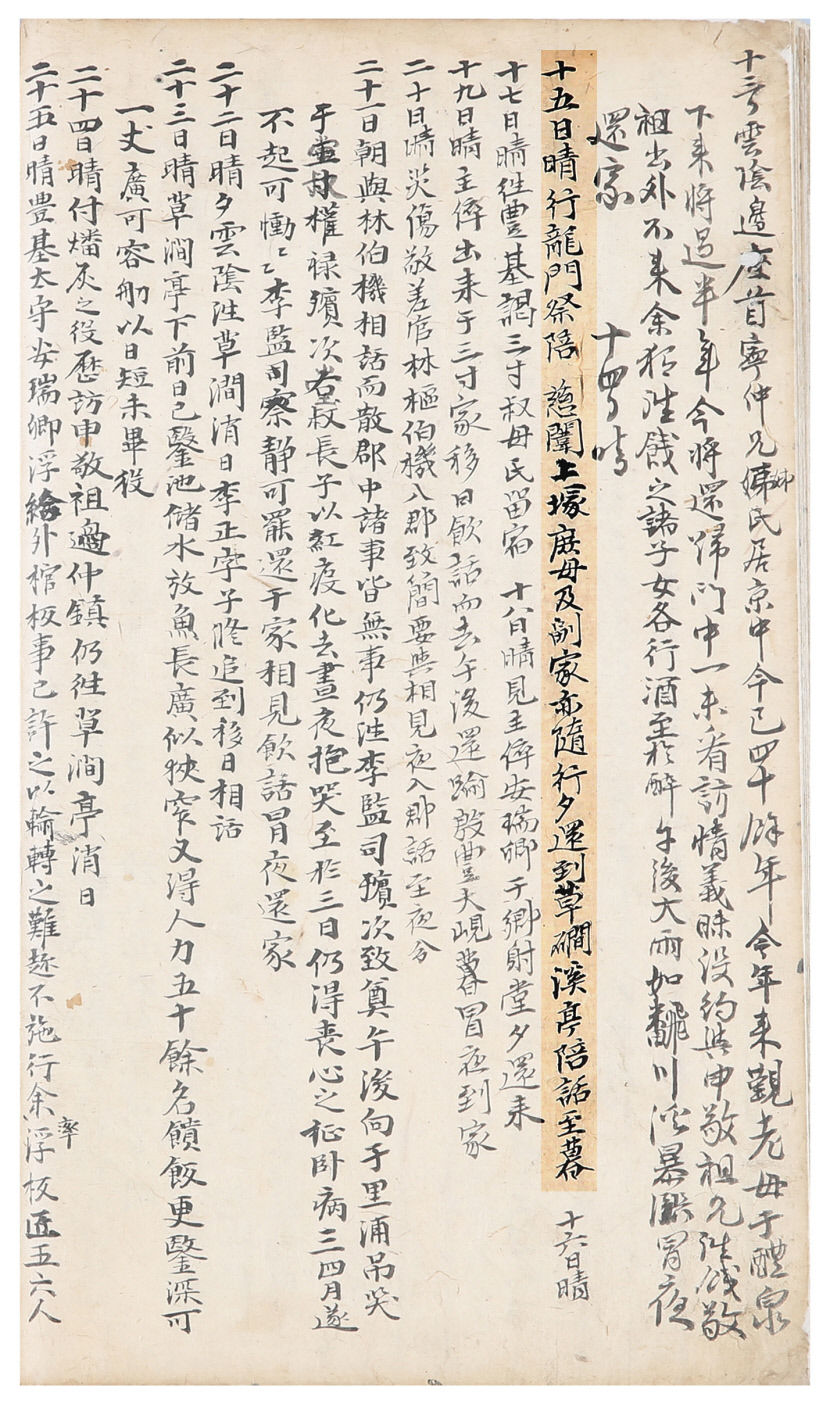 十三日雲陰邊座首寧仲兄姊氏居京中今已四十餘年今年來覲老母于醴泉
下來將過半年今將還歸門中一未看訪情義昧沒約與申敬祖兄往餞敬
祖出外不來余獨往餞之諸子女各行酒至於醉午後大雨如飜川渓暴漲冒夜
還家 十四日晴
十五日晴行龍門祭陪慈闈上塚庶母及副家亦隨行夕還到草磵溪亭陪話至暮 十六日晴
十七日晴往豊基謁三寸叔母氏留宿 十八日晴見主倅安瑞卿于鄉射堂夕還來
十九日晴主倅出來于三寸家移日飲話而去午後還踰殷豊大峴暮冒夜到家
二十日晴災傷敬差官林樞伯機入郡致簡要與相見夜入郡話至夜分
二十一日朝與林伯機相話而散郡中諸事皆無事仍往李監司殯次致奠午後向于里浦吊哭
于權祿殯次叔長子以紅疫化去晝夜抱哭至於三日仍得喪心之症卧病三四月遂
不起可慟〻李監司察靜可罷還于家相見飲話冒夜還家
二十二日晴夕雲陰往草澗消日李正字子修追到移日相話
二十三日晴草澗亭下前日已鑿池儲水放魚長廣似狹窄又得人力五十餘名饋飯更鑿深可
一丈廣可容舠以日短未畢役
二十四日晴付燔灰之役歷訪申敬祖邊仲鎮仍往草澗亭消日
二十五日晴豊基太守安瑞卿浮外棺板事已許之以輸轉之難趂不施行余率浮板匠五六人